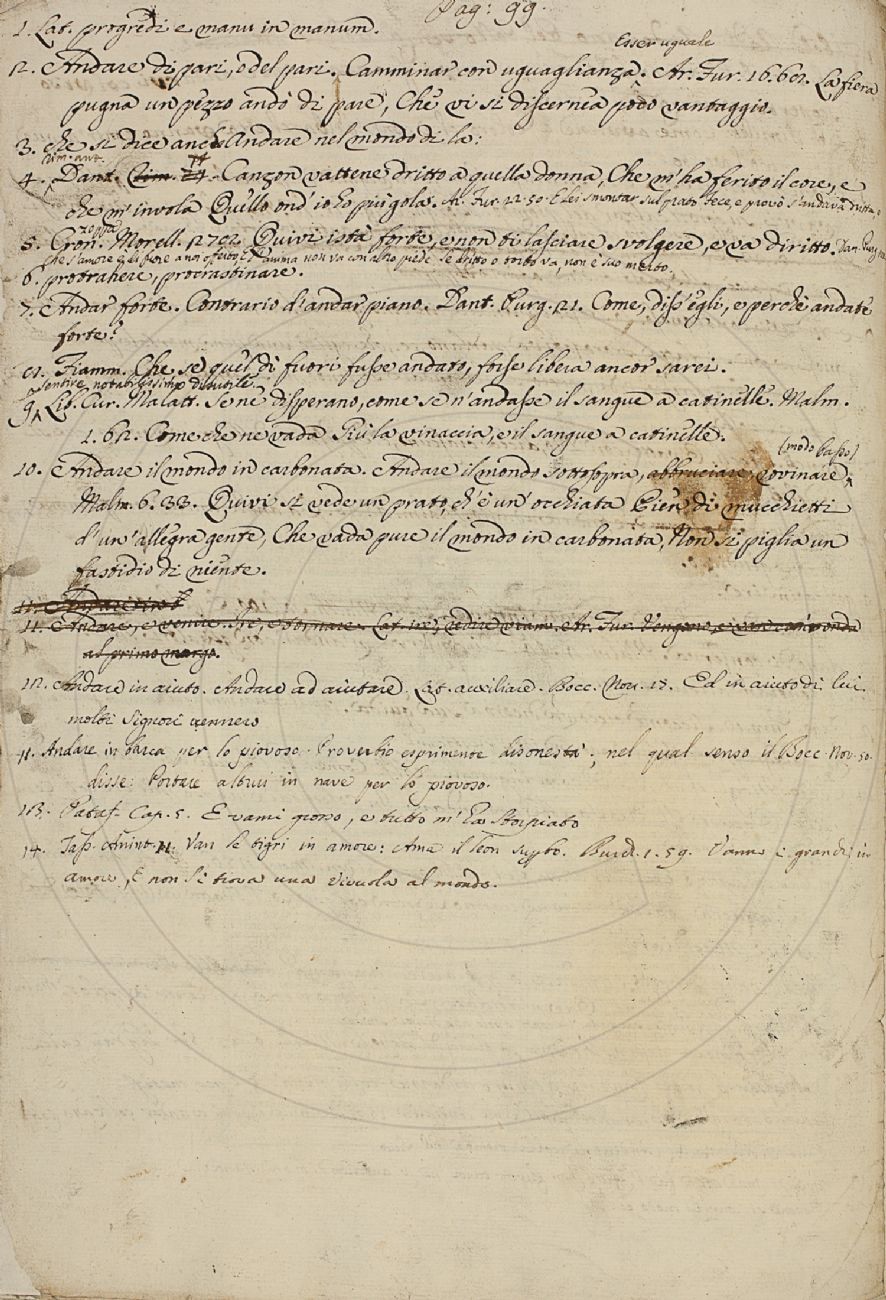 Pag: 99.
1. Lat. progredi e manu in manum.
Esser uguale
2. Andare di pari, e del pari. Camminar con uguaglianza. Ar. Fur. 16. 68. La fiera
pugna un pezzo andò di pare, Che vi si discernea poco vantaggio.
3. che si dice anche Andare nel mondo di la:
rim. ant.
4. Dant. Canzon vattene dritto a quella donna, Che m'ha ferito il core, e
che m'invola Quello ond'io ho più gola. Ar. Fur. 22. 50. E lei smontar sul prato fece, e provò s'andava dritta, o
zoppa
5. Cron. Morell. 270. Quivi istà forte, e non ti lasciare svolgere, e va diritto. Dan. Purg. 18.
che s'amore è di fuore a noi offerto, E l'anima non va con altro piede Se dritto o torto va, non è suo merto.
6. protrahere, procrastinare.
7. Andar forte. Contrario d'andar piano. Dant. Purg. 21. Come, diss'egli, e perchè andate
forte?
8. Fiamm. Che se quel di fuori fusse andato, forse libera ancor sarei.
sentire notabilissimo
9. Lib. Cur. Malatt. Se ne disperano, come se n'andasse il sangue a catinelle. Malm.
1. 62. Come che ne vada Più la vinaccia, e il sangue a catinelle.
(modo basso)
10. Andare il mondo in carbonata. Andare il mondo sottosopra, abbruciare, rovinare,
Malm. 6. 33. Quivi si vede un prato, ch'è un' occhiata Pien di mucchietti
d'un'allegra gente, Che vada pure il mondo in carbonata, Non si piglia un
fastidio di niente.
11. Andare
11. Andare, e venire. Ire, e tornare. Lat. ire, redire viam. Ar. Fur. Vengono, e van con onda
al primo margo.
12. Andare in aiuto. Andare ad aiutare. Lat. auxiliare. Bocc. Nov. 18. Ed in aiuto di lui
molti Signori vennero
11. Andare in barca per lo piovoso. Proverbio esprimente disonestà; nel qual senso il Bocc. Nov. 50.
disse: Portare altrui in nave per lo piovoso.
13. Pataf. Cap. 5. E vami grosso, e tutto m'ha storpiato
14. Tass. Amint. Van le tigri in amore: Ama il leon superbo. Burch. 1. 59. Vanno e grandi in
amore, E non si trova una vivuola al mondo.